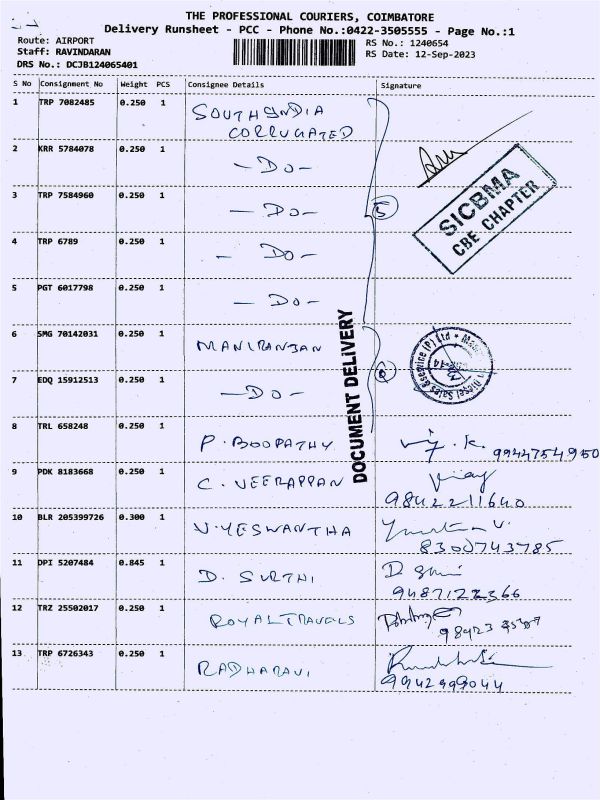 THE PROFESSIONAL COURIERS, COIMBATORE
Delivery Runsheet - PCC - Phone No.:0422-3505555 - Page No.:1
Route: AIRPORT
RS No.: 1240654
Staff: RAVINDARAN
RS Date: 12-Sep-2023
DRS No.: DCJB124065401
S No Consignment No Weight PCS Consignee Details Signature
1 TRP 7082485 0.250 1 SOUTH INDIA
CORRUGATED
2 KRR 5784078 0.250 1 -DO-
3 TRP 7584960 0.250 1 -DO- 5
SICBMA
CBE CHAPTER
4 TRP 6789 0.250 1 - DO-
5 PGT 6017798 0.250 1 - DO-
6 SMG 70142031 0.250 1 MANIRANJAN
7 EDQ 15912513 0.250 1 -DO-
DOCUMENT DELIVERY
8 TRL 658248 0.250 1 P. BOOPATHY 9944754950
9 PDK 8183668 0.250 1 C. VEERAPPAN Vijay
9842211640
10 BLR 205399726 0.300 1 V.YESWANTHA
8300743785
11 DPI 5207484 0.845 1 D. SURTHI
9487122366
12 TRZ 25502017 0.250 1 ROYAL TRAVELS
98423
13 TRP 6726343 0.250 1 RADHARAVI
9942999044